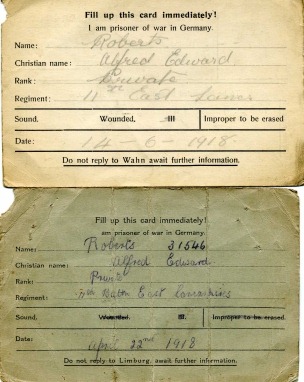 Fill up this card immediately!
I am prisoner of war in Germany.
Name: Roberts
Christian name: Alfred Edward
Rank: Private
Regiment: 11th East Lancs
Sound. Wounded, Ill Improper to be erased
Date: 14-6-1918
Do not reply to Wahn await further information.
Fill up this card immediately!
am prisoner of war in Germany.
Name: Roberts 31546
Christian name: Alfred Edward
Rank: Private
Regiment: Batn East Lancashires
Sound, Wounded, Ill. Improper to be erased.
Date: April 22nd 1918
Do not reply to Limburg, await further information.